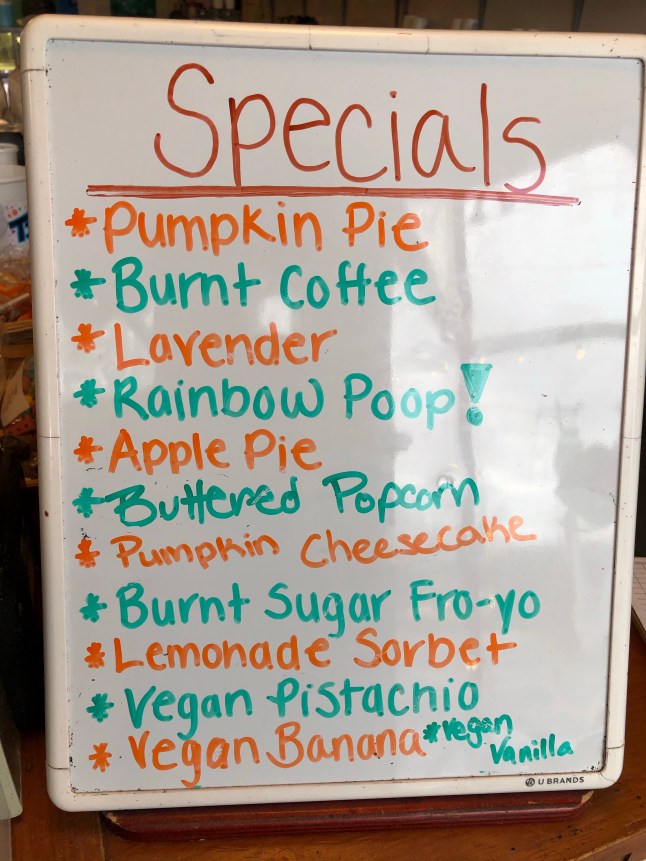 Specials
*Pumpkin Pie
*Burnt Coffee
*Lavender
*Rainbow Poop!
*Apple Pie
*Buttered Popcorn
*Pumpkin Cheesecake
*Burnt Sugar Fro-yo
*Lemonade Sorbet
*Vegan Pistachio
*Vegan Banana *Vegan
Vanilla
U BRANDS